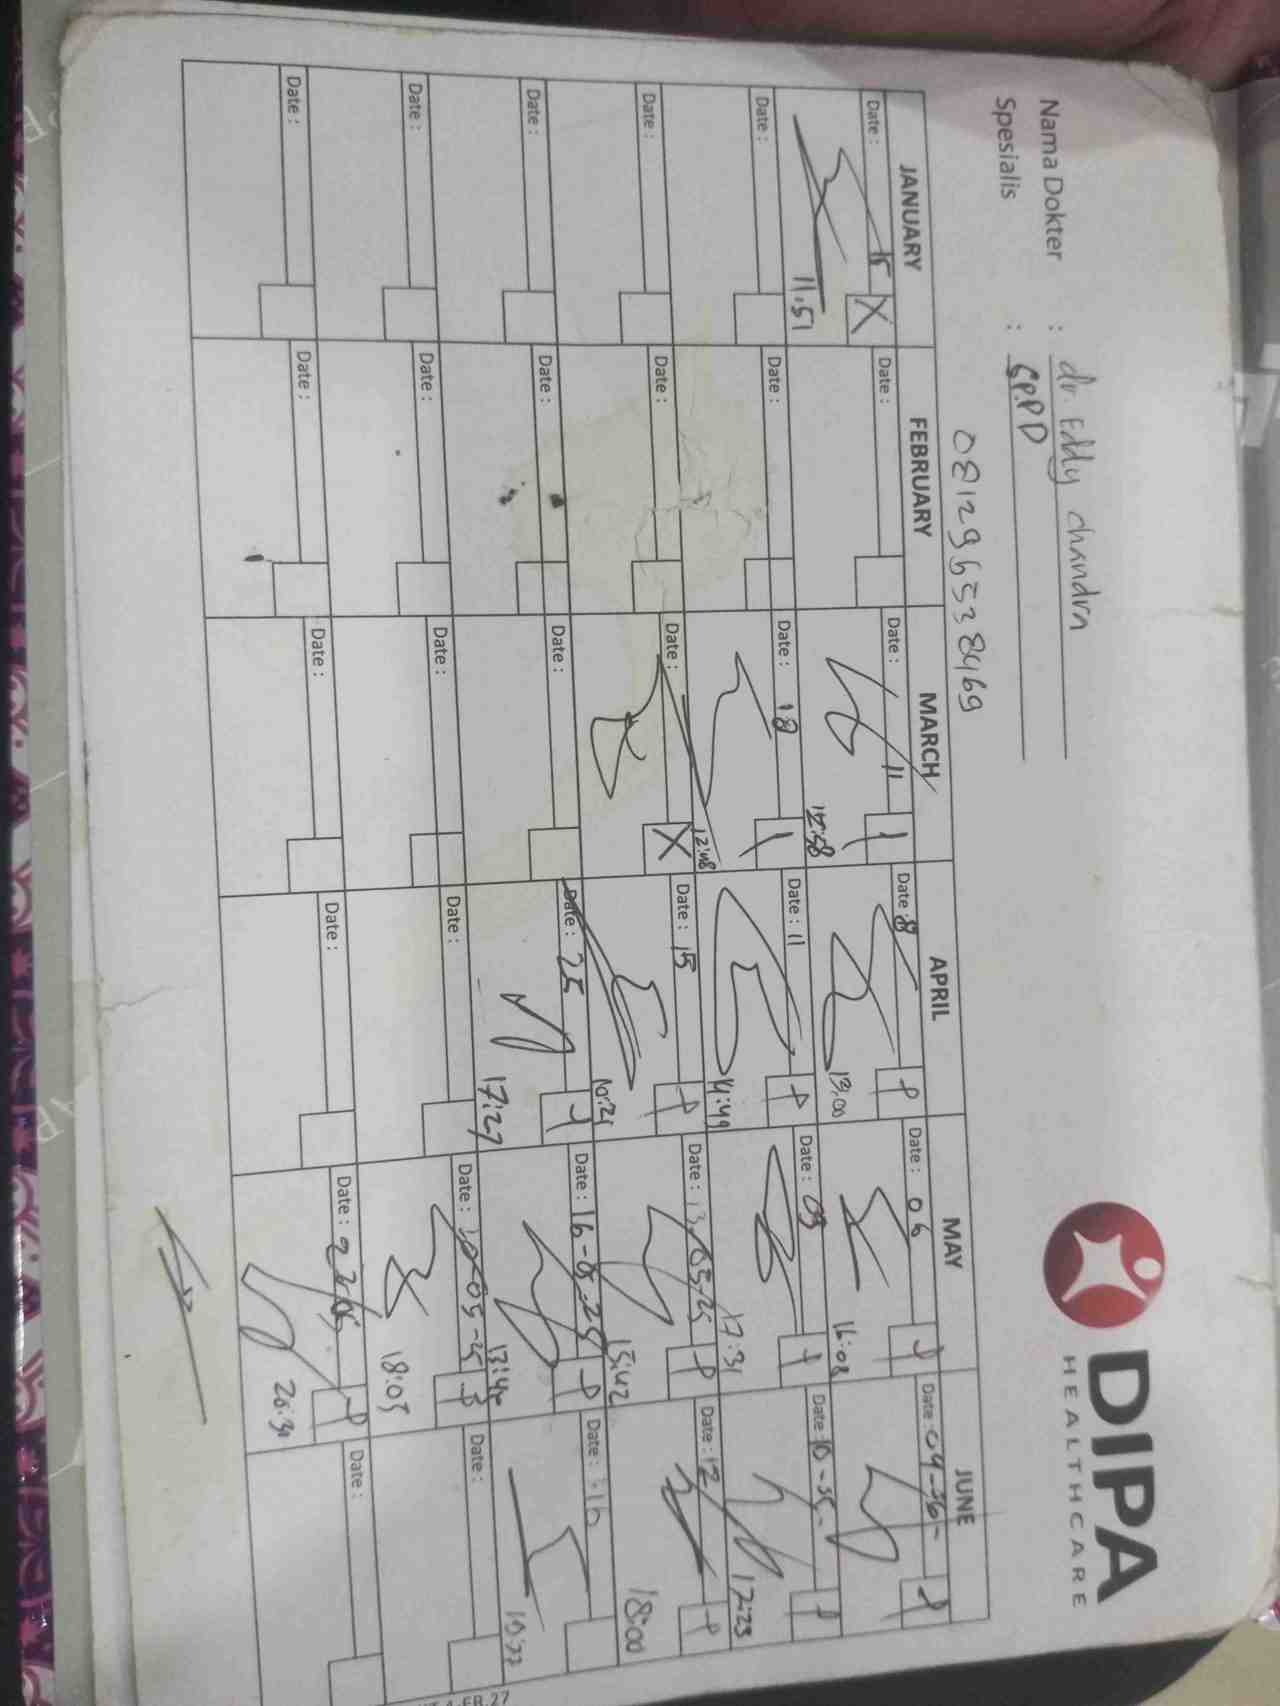 DIPA
HEALTHCARE
Nama Dokter : dr. Eddy chandra
Spesialis : SP.PD
081296538469
JANUARY FEBRUARY MARCH APRIL MAY JUNE
Date : 15 X Date : Date : 11 Date : 8 Date : 06 Date : 04-06-
11.51 13.00 16:08
Date : Date : Date : 18 Date : 11 Date : 09 Date : 10
12:48 14:49 17:31 17:23
Date : Date : Date : X Date : 15 Date : 13-05-25 Date : 12
15:42 18:00
Date : Date : Date : Date : 25 Date : 16-05-25 Date : 16
17:27
Date : Date : Date : Date : Date : 20-05-25 Date :
18:03
Date : Date : Date : Date : Date : Date :